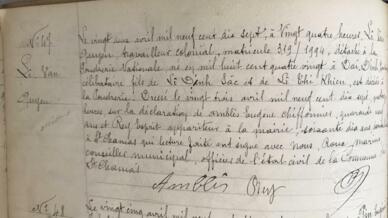 N° 47
Le vingt deux avril mil neuf cent dix sept, à vingt quatre heures, Lê Văn
Lê Van
Duyen, travailleur colonial, matricule 319, 1994, détaché à la
Duyen
Poudrerie Nationale, né en mil huit cent quatre vingt à Dai
célibataire fils de Lê Dinh Sac et de Lê Thi Khien, est décédé
à la Poudrerie. Dressé le vingt trois avril mil neuf cent dix sept,
heures, sur la déclaration de Amblès Eugène chiffonnier, quarante
ans et Rey Esprit appariteur à la mairie, soixante dix ans
à St Chamas qui lecture faite ont signé avec nous,
conseiller municipal, officier de l'état civil de la Commune de
St Chamas
Amblès Rey
N° 48
Le vingt cinq avril mil neuf cent